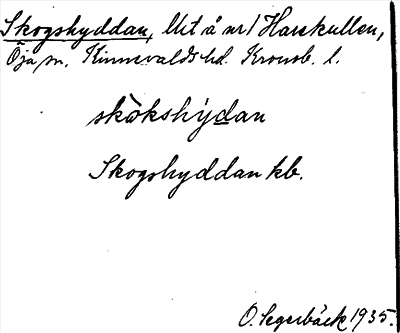 Skogshyddan, lht å nr 1 Harekullen,
Öja sn. Kinnevalds hd. Kronob. l.
skòkshýdan
Skogshyddan kb.
O. Segerbäck 1935.